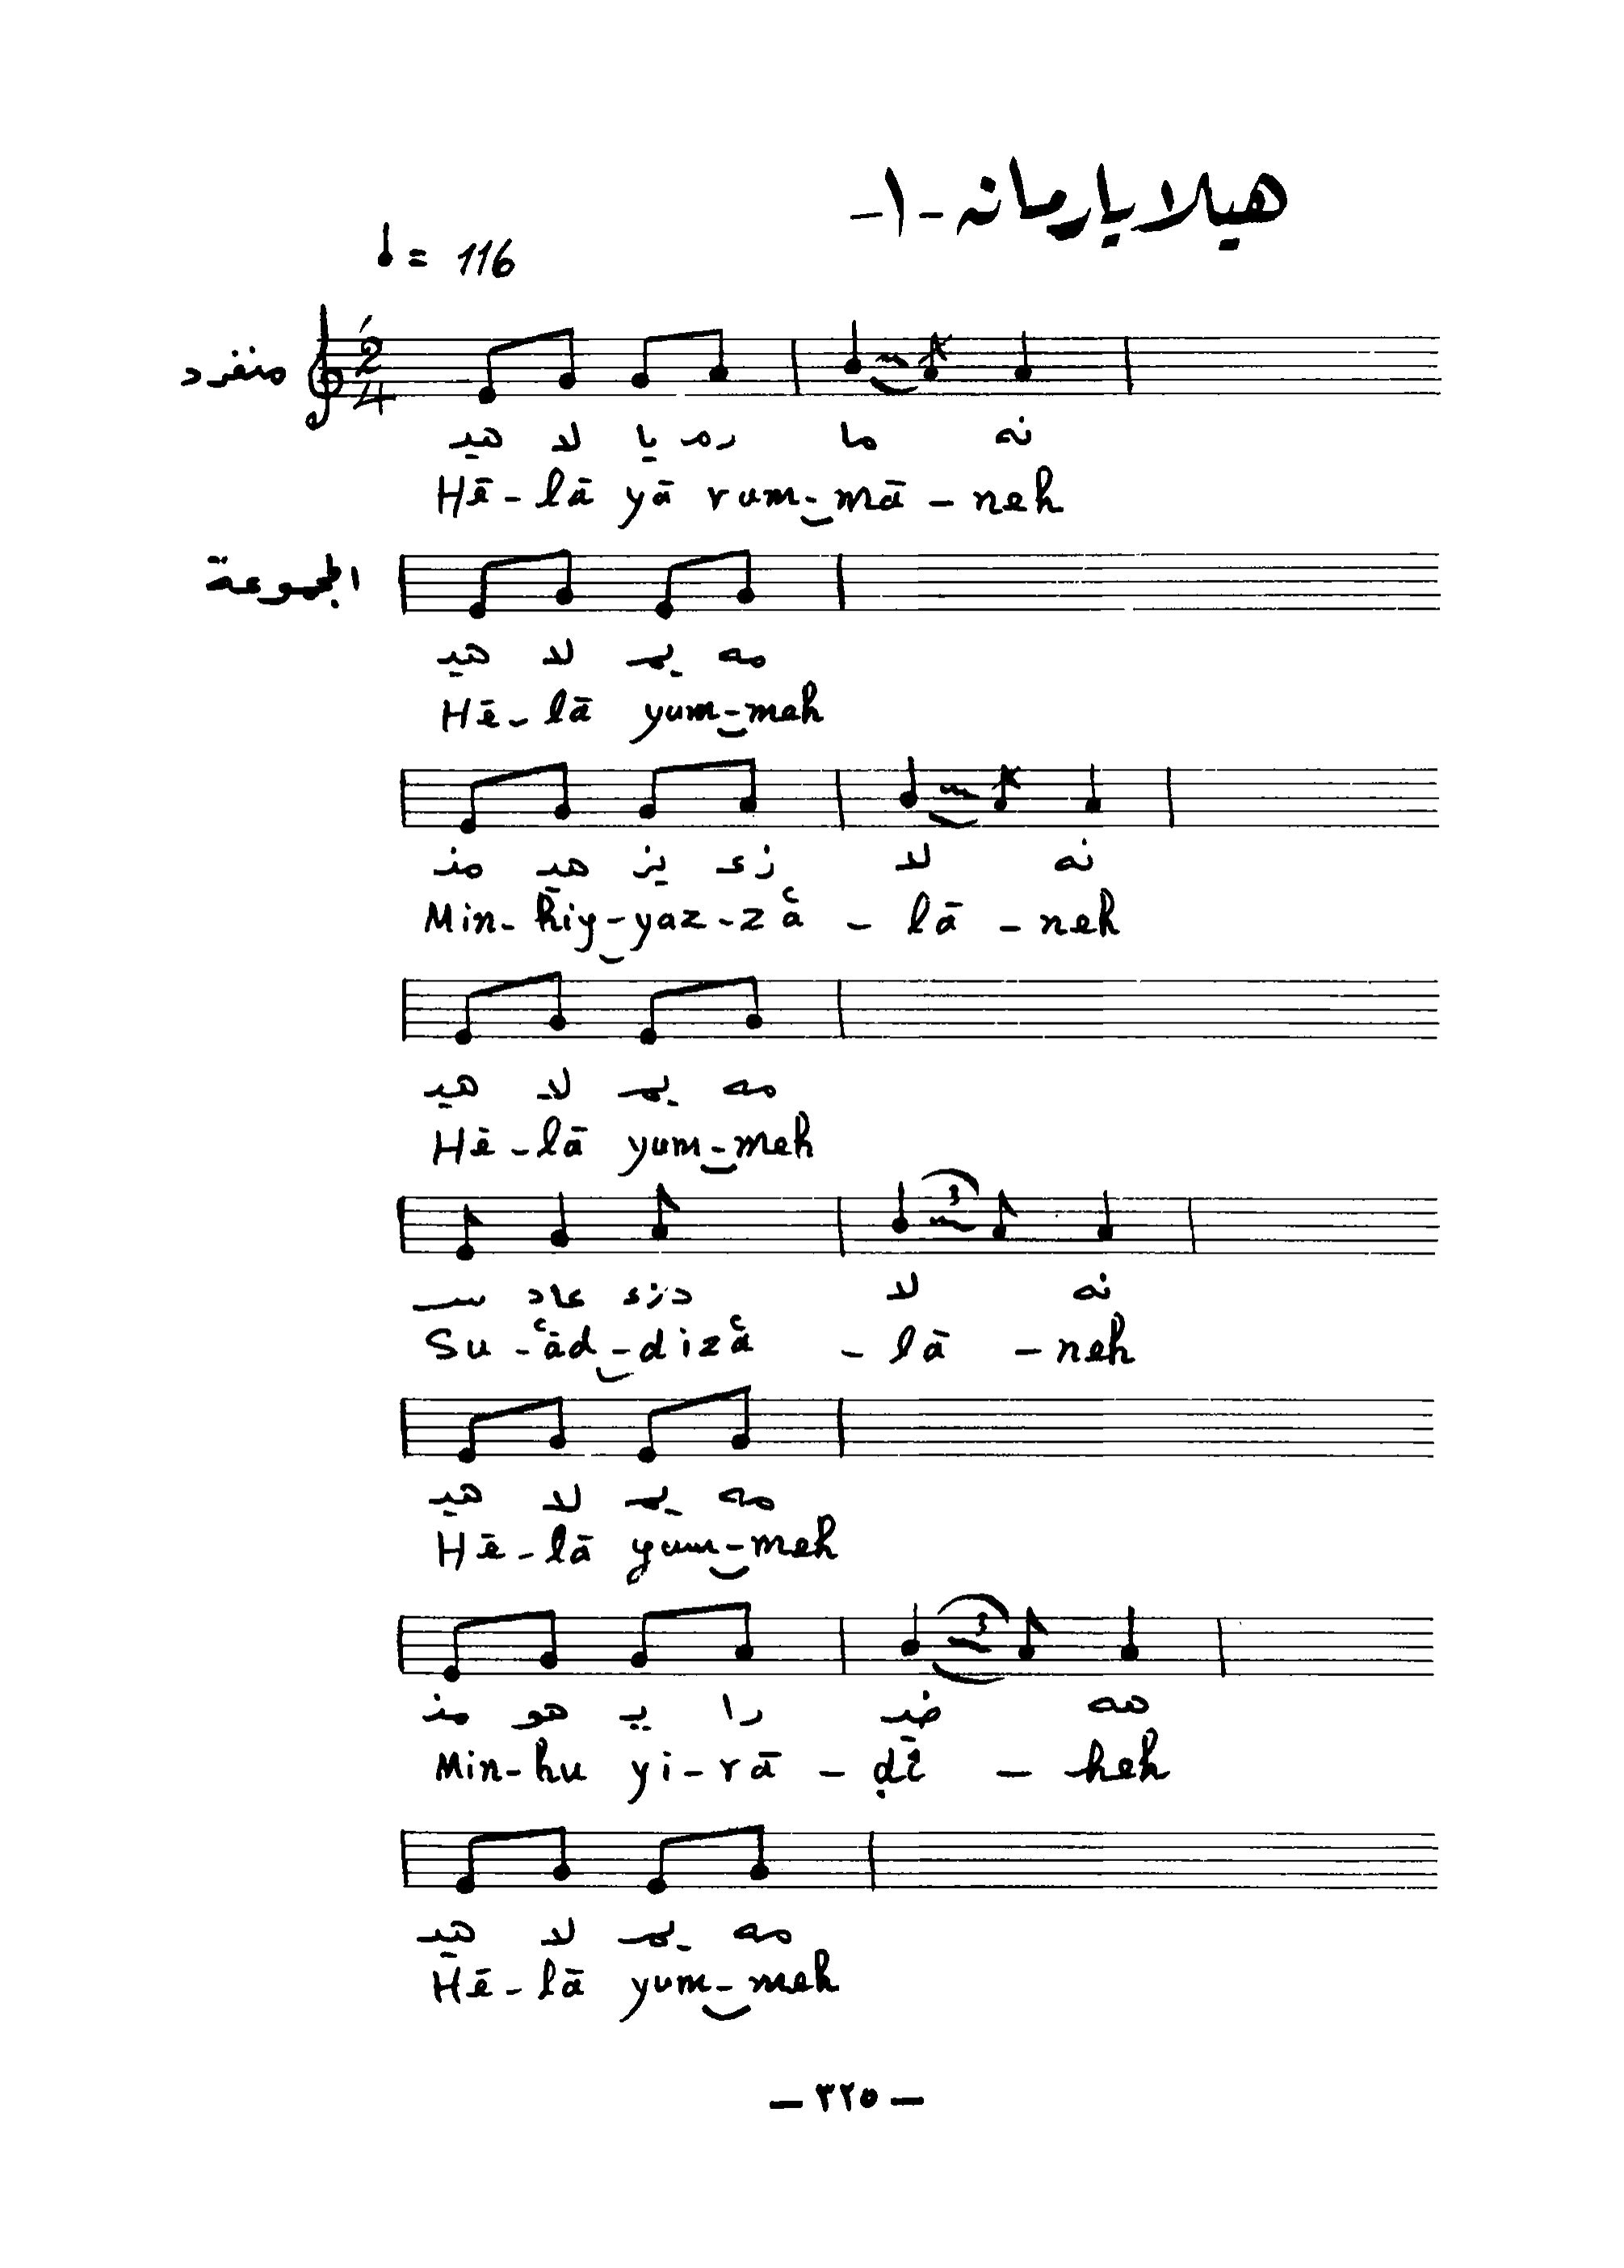 هيلا يا رمانه -١-
♩ = 116
منفرد
2/4
هيـ لا يا رمـ ما نه
Hē - lā yā rum - mā - neh
المجموعة
هيـ لا يمـ مه
Hē - lā yum - meh
منـ هيـ يز زعـ لا نه
Min - hiy - yaz - zăʿ - lā - neh
هيـ لا يمـ مه
Hē - lā yum - meh
3
سـ عاد دزعـ لا نه
Su - ʿād - dizăʿ - lā - neh
هيـ لا يمـ مه
Hē - lā yum - meh
3
منـ هو يـ را ضيـ هه
Min - hu yi - rā - ḍī - heh
هيـ لا يمـ مه
Hē - lā yum - meh
- ٣٢٥ -